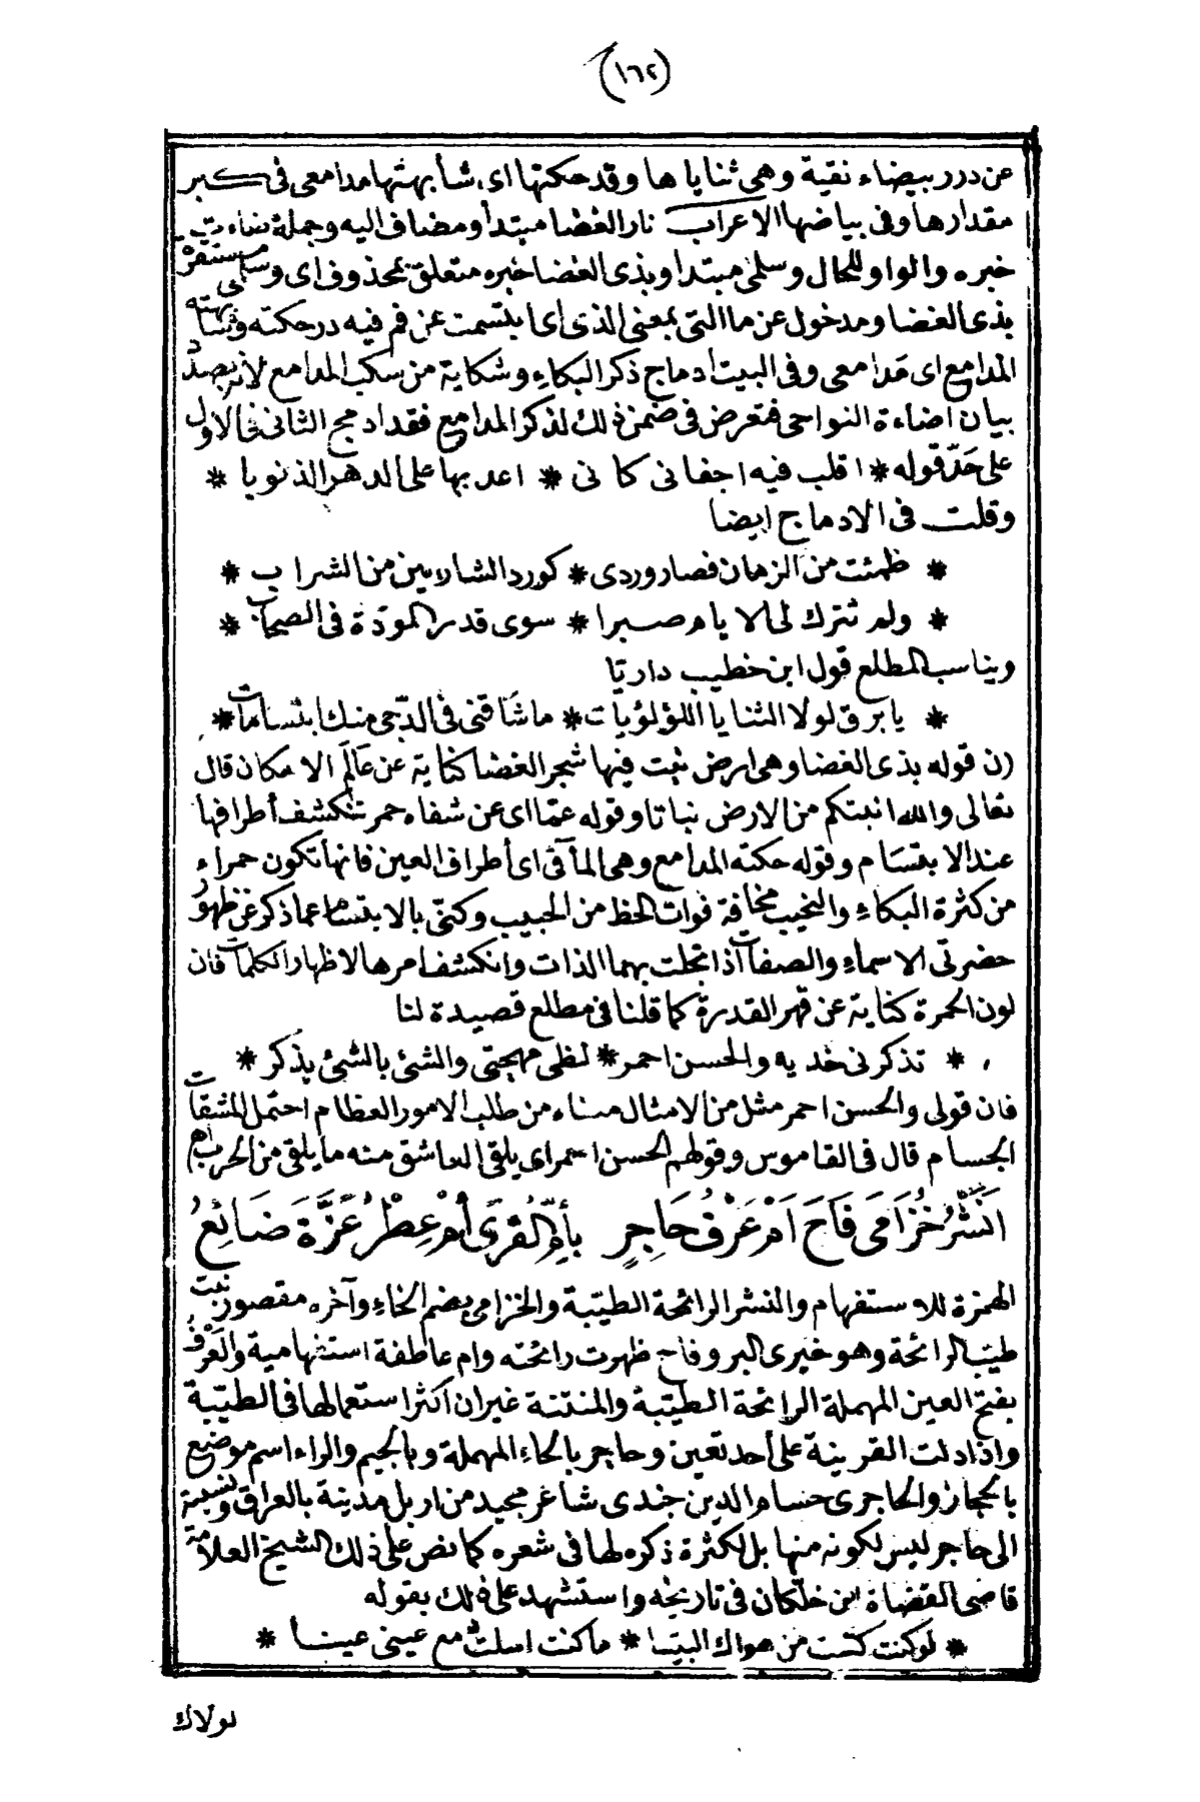 (١٦٢)
عن درر بيضاء نقية وهي ثناياها وقد حكتها اى شابهتها مدامعى فى كبر
مقدارها وفى بياضها الاعراب نار الغضا مبتدأ ومضاف اليه وجملة ضاءت
خبره والواو للحال وسلمى مبتدا وبذى الغضا خبره متعلق بمحذوف اى وسلمى مستقرة
بذى الغضا ومدخول عن ما التى بمعنى الذى اى ابتسمت عن فم فيه در حكته وشابهته
المدامع اى مَدامعى وفى البيت ادماج ذكر البكاء وشكاية من سكب المدامع لانه بصدد
بيان اضاءة النواحى فتعرض فى ضمن ذلك لذكر المدامع فقد ادمج الثانى فى الاول
على حَدّ قوله * اقلب فيه اجفانى كانى * اعد بها على الدهر الذنوبا *
وقلت فى الادماج ايضا
* ظمئت من الزمان فصار وردى * كورد الشاربين من الشراب *
* ولم تترك لى الايام صبرا * سوى قدر المودّة فى الصحاب *
ويناسب المطلع قول ابن خطيب داريّا
* يا برق لولا الثنايا اللؤلؤيات * ما شَاقنى فى الدّجى منك ابتسامات *
(ن قوله بذى الغضا وهى ارض نبت فيها شجر الغضا كناية عن عَالَم الامكان قال
تعالى والله انبتكم من الارض نباتا وقوله عمّا اى عن شفاه حمر تنكشف أطرافها
عند الابتسَام وقوله حكته المدامع وهى المآقى اى أطراف العين فانها تكون حمراء
من كثرة البكاء والنحيب مخافة فوات الحظ من الحبيب وكنى بالابتسام عما ذكر عن ظهور
حضرتى الاسماء والصفات اذا تجلت بهما الذات وانكشف امرها لاظهار الكلمات فان
لون الحمرة كناية عن قهر القدرة كما قلنا فى مطلع قصيدة لنا
* تذكرنى خديه والحسن احمر * لظى مهجتى والشئ بالشئ يذكر *
فان قولى والحسن احمر مثل من الامثال معناه من طلب الامور العظام احتمل المشقات
الجسام قال فى القاموس وقولهم الحسن احمر اى يلقى العاشق منه ما يلقى من الحرب اهـ
اَنَشْرُ خُزَامَى فَاحَ اَمْ عَرْفُ حَاجِرٍ بأُمِّ القُرَى أمْ عِطْرُ عَزَّةَ ضَائِعُ
الهمزة للاستفهام والنشر الرائحة الطيّبة والخزامى بضم الخاء وآخره مقصور نبت
طيّب الرائحة وهو خيرى البر وفاح ظهرت رائحته وام عاطفة استفهامية والعَرْفُ
بفتح العين المهملة الرائحة الطيّبة والمنتنة غير ان اكثر استعمالها فى الطيّبة
واذا دلت القرينة على أحد تعين وحاجر بالحاء المهملة وبالجيم والراء اسم موضع
بالحجاز والحاجرى حسام الدين جندى شاعر مجيد من اربل مدينة بالعراق ونسبته
الى حاجر ليس لكونه منها بل لكثرة ذكره لها فى شعره كما نص على ذلك الشيخ العلامة
قاضى القضاة ابن خلّكان فى تاريخه واستشهد على ذلك بقوله
* لو كنت كتمت من هواك البينا * ما كنت اسلت دمع عينى عينا *
لولاك